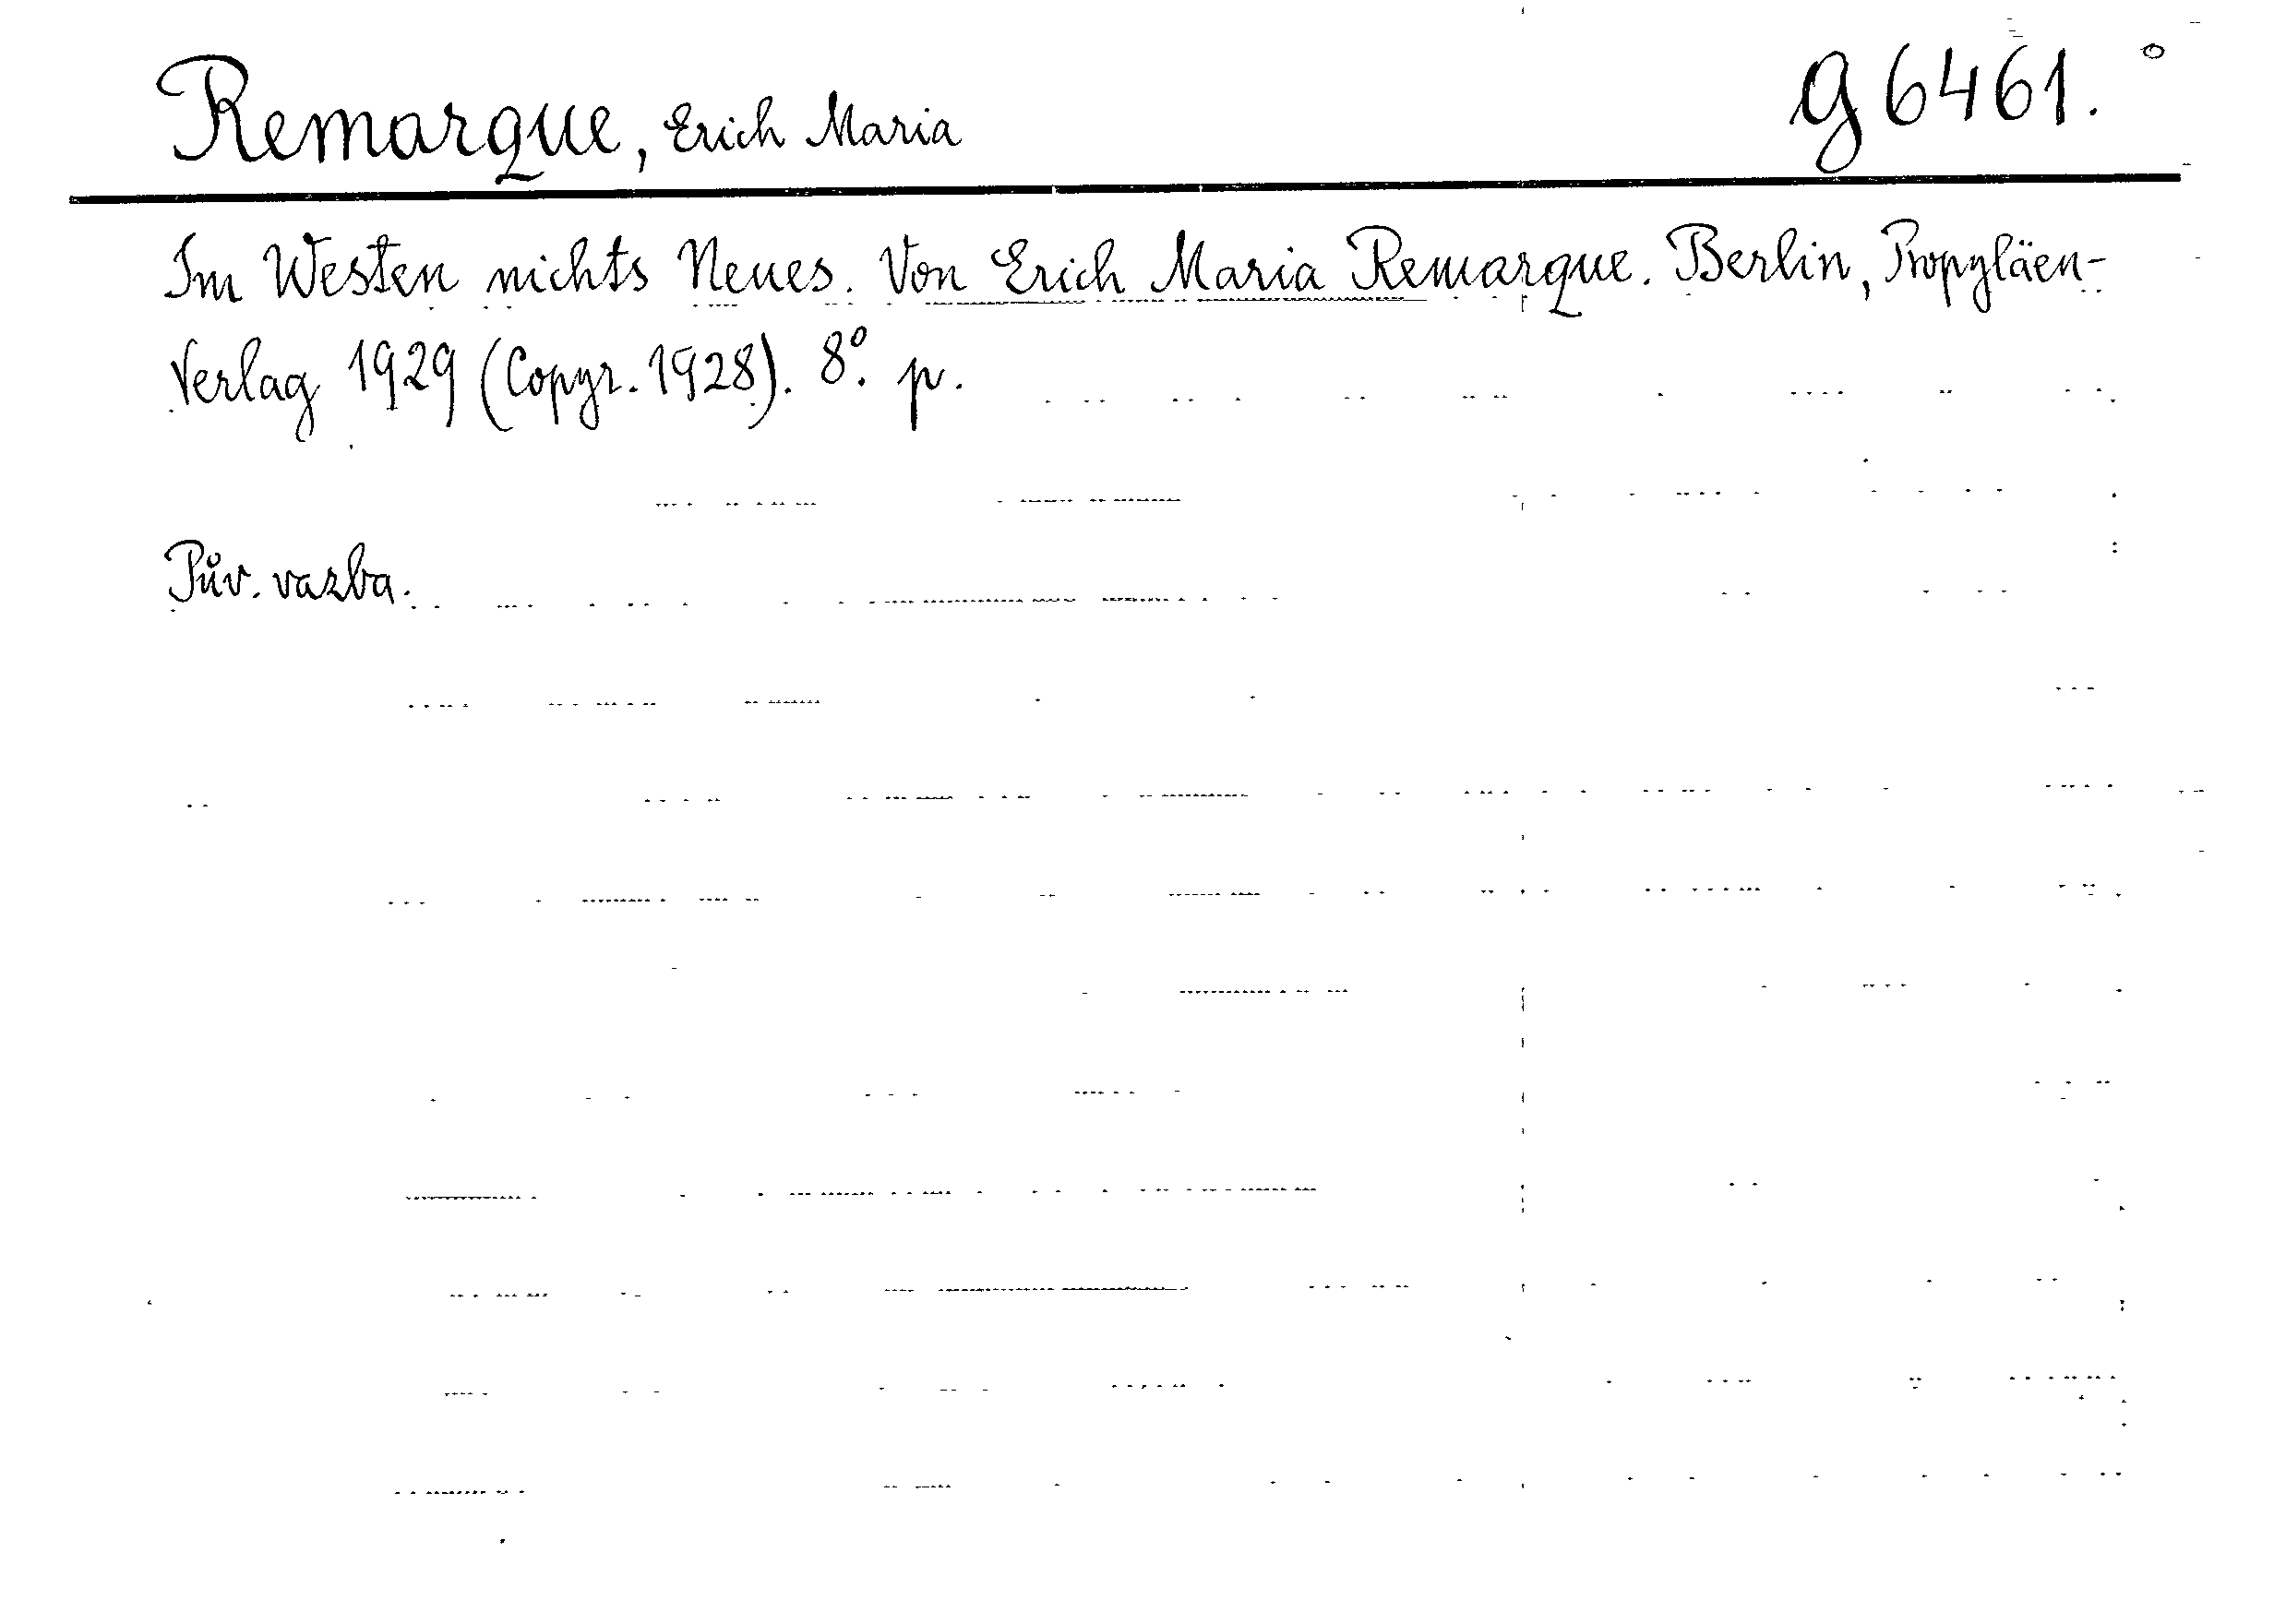 Remarque, Erich Maria g 6461.°
Im Westen nichts Neues. Von Erich Maria Remarque. Berlin, Propyläen-
Verlag 1929 (Copyr. 1928). 8°. p.
Pův. vazba.